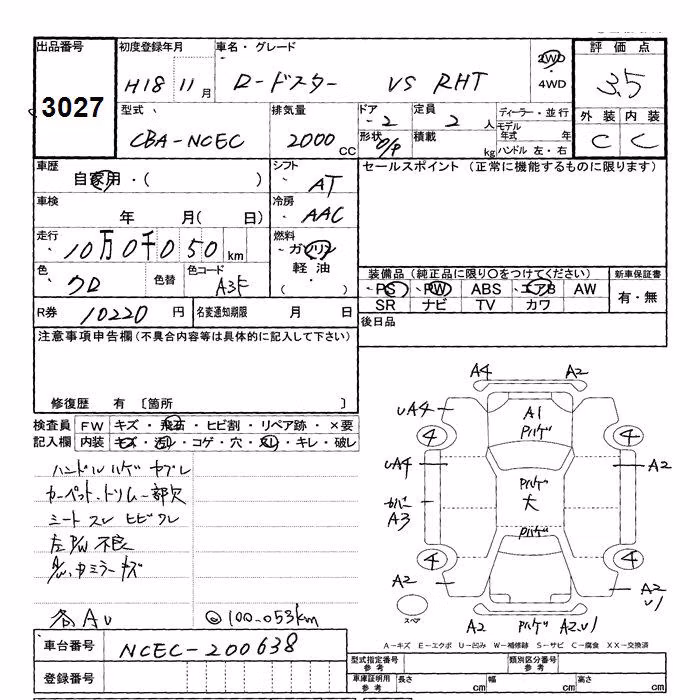 出品番号 初度登録年月 車名・グレード 2WD 4WD 評価点
3027 H18 11月 ロードスター VS RHT 3.5
型式 排気量 ドア 定員 ディーラー・並行 外装 内装
CBA-NCEC 2000 CC 2 2人 モデル年式 年 C C
形状 O/P 積載 kg ハンドル 左・右
車歴 シフト セールスポイント (正常に機能するものに限ります)
自家用・( ) AT
車検 冷房
年 月( 日) AAC
走行 燃料
10万0千050km ガソリン
軽油
( )
色 色替 色コード
クロ A3F
装備品 (純正品に限り○をつけてください) 新車保証書
PS PW ABS エアB AW 有・無
SR ナビ TV カワ
R券 10220円 名変通知期限 月 日 後日品
注意事項申告欄(不具合内容等は具体的に記入して下さい)
修復歴 有 〔箇所 〕
検査員 FW キズ・飛石・ヒビ割・リペア跡・×要
記入欄 内装 キズ・汚レ・コゲ・穴・スレ・キレ・破レ
ハンドルハゲ ヤブレ
カーペット、トリム一部欠
シートスレ ヒビワレ
左P/W不良
ミラーキズ
各AU ◎100.053km
A4 A2
UA4 A1
Pハゲ
4 4
UA4 A2
Pハゲ
大
カバー
A3
Pハゲ
4 4
A2 A2
U1
スペア A2 Pハゲ A2.U1
A-キズ E-エクボ U-凹み W-補修跡 S-サビ C-腐食 XX-交換済
車台番号 NCEC-200638
型式指定番号 参考 類別区分番号 参考
登録番号 車庫証明用 参考 長さ cm 幅 cm 高さ cm